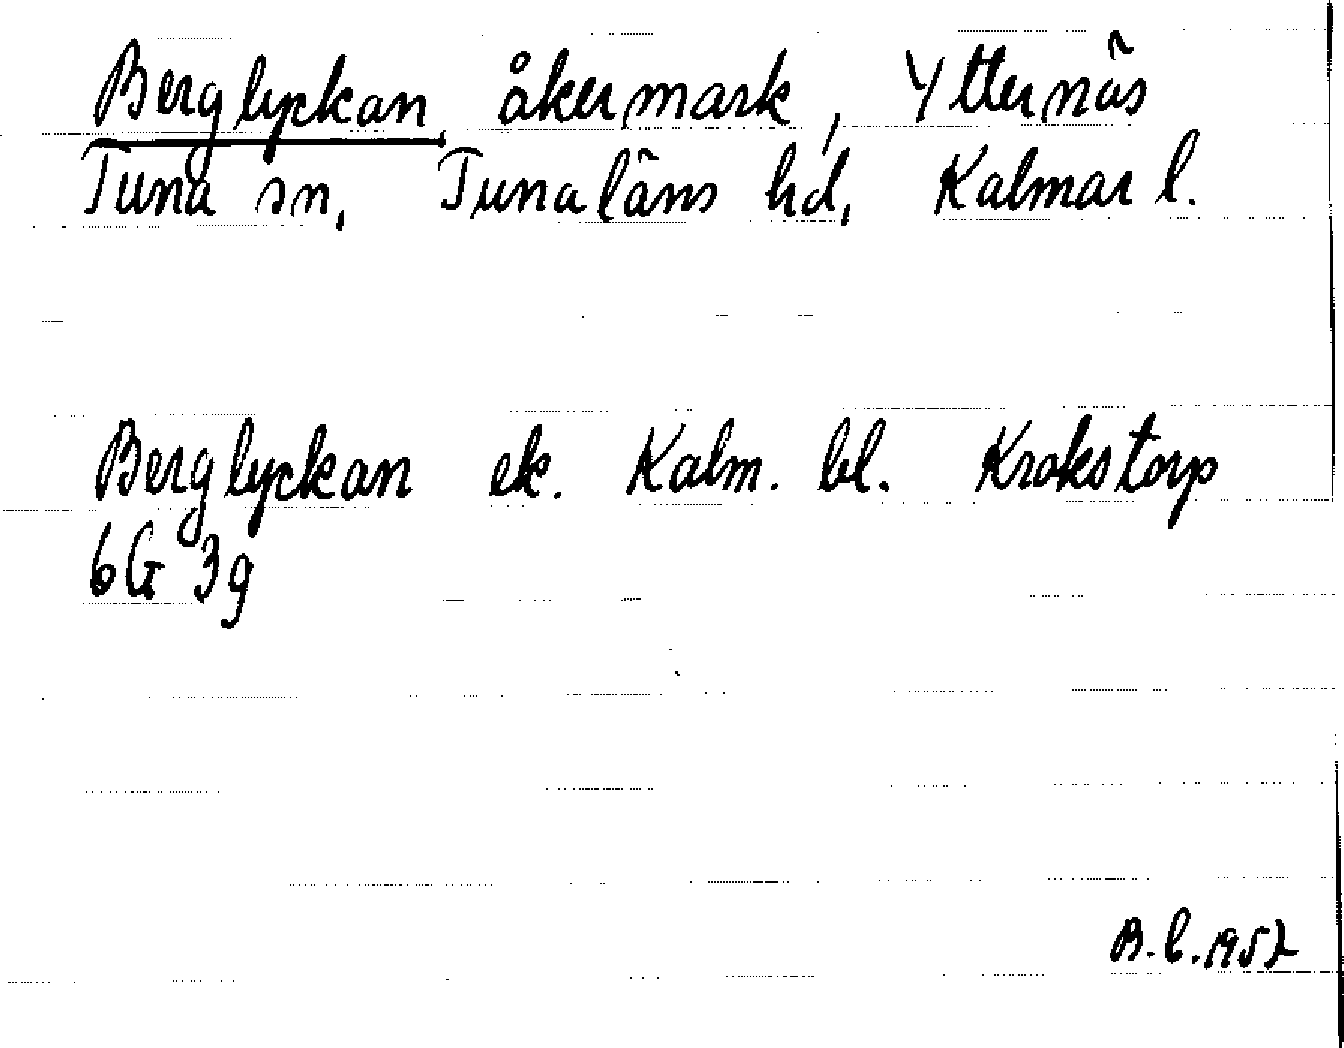 Berglyckan, åkermark, Ytternäs
Tuna sn, Tunaläns hd, Kalmar l.
Berglyckan ek. Kalm. bl. Krokstorp
6G 3g
B.L. 1952